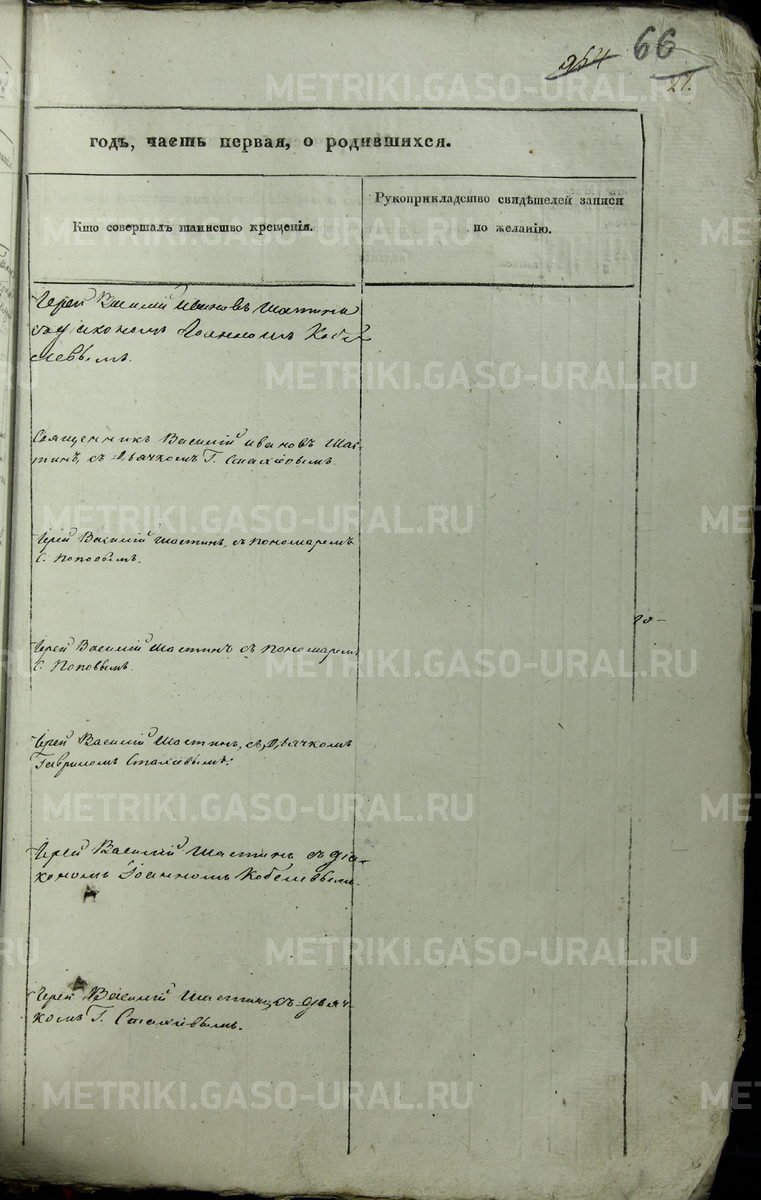 254 66
27.
годъ, часть первая, о родившихся.
Кто совершалъ таинство крещенія.
Рукоприкладство свидѣтелей записи
по желанію.
Іерей Василій Ивановъ Шастинъ
съ діакономъ Іоанномъ Кобе
левымъ.
Священникъ Василій Ивановъ Шас-
тинъ, съ Дьячкомъ Г. Стахіевымъ.
Іерей Василій Шастинъ, съ пономаремъ
С. Поповымъ.
Іерей Василій Шастинъ съ пономаремъ
С. Поповымъ.
Іерей Василій Шастинъ, съ Дьячкомъ
Гавриломъ Стахіевымъ:
Іерей Василій Шастинъ съ діа-
кономъ Іоанномъ Кобелевымъ.
Іерей Василій Шастинъ съ дьяч-
комъ Г. Стахіевымъ.
METRIKI.GASO-URAL.RU